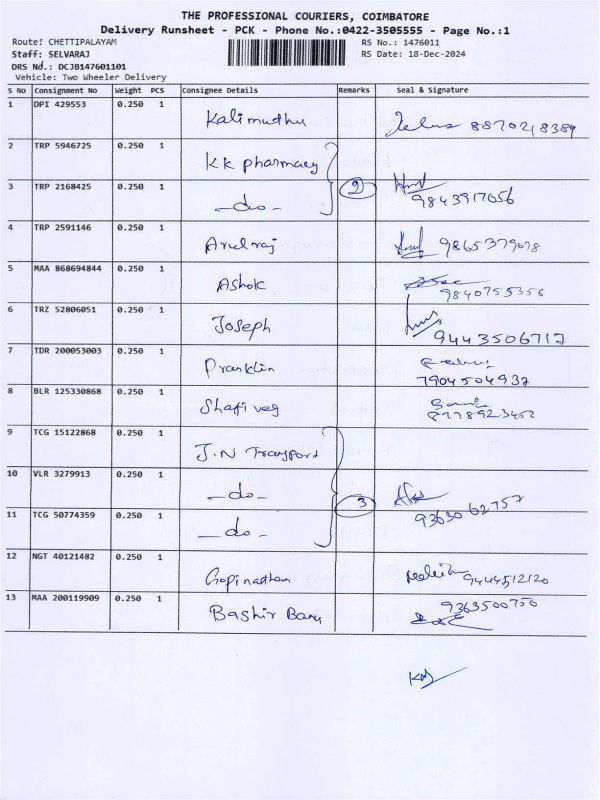 THE PROFESSIONAL COURIERS, COIMBATORE
Delivery Runsheet - PCK - Phone No.:0422-3505555 - Page No.:1
Route: CHETTIPALAYAM RS No.: 1476011
Staff: SELVARAJ RS Date: 18-Dec-2024
DRS No.: DCJB147601101
Vehicle: Two Wheeler Delivery
S No Consignment No Weight PCS Consignee Details Remarks Seal & Signature
1 DPI 429553 0.250 1 Kalimuthu 8870218389
2 TRP 5946725 0.250 1 KK pharmacy
3 TRP 2168425 0.250 1 -do- 2 9843917056
4 TRP 2591146 0.250 1 Arulraj 9865379078
5 MAA 868694844 0.250 1 Ashok 9840755356
6 TRZ 52806051 0.250 1 Joseph 9443506717
7 TDR 200053003 0.250 1 Pranklin 7904504937
8 BLR 125330868 0.250 1 Shafi veg
9 TCG 15122868 0.250 1 J.N Transport
10 VLR 3279913 0.250 1 -do- 3 9363062757
11 TCG 50774359 0.250 1 -do-
12 NGT 40121482 0.250 1 Gopinathan 9444512120
13 MAA 200119909 0.250 1 Bashir 9363500750